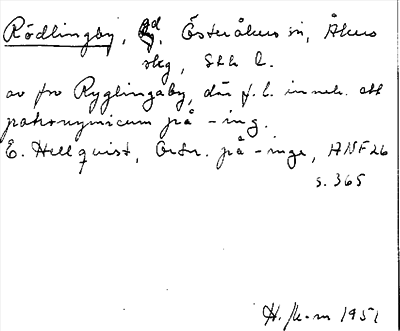 Rödlingby, gd, Österåkers sn, Åkers
skg, Shh l.
av fro Ryglingaby, där f.l. inneh. ett
patronymicum på -ing.
E. Hellquist, Ortn. på -inge, ANF 26
s. 365
1951